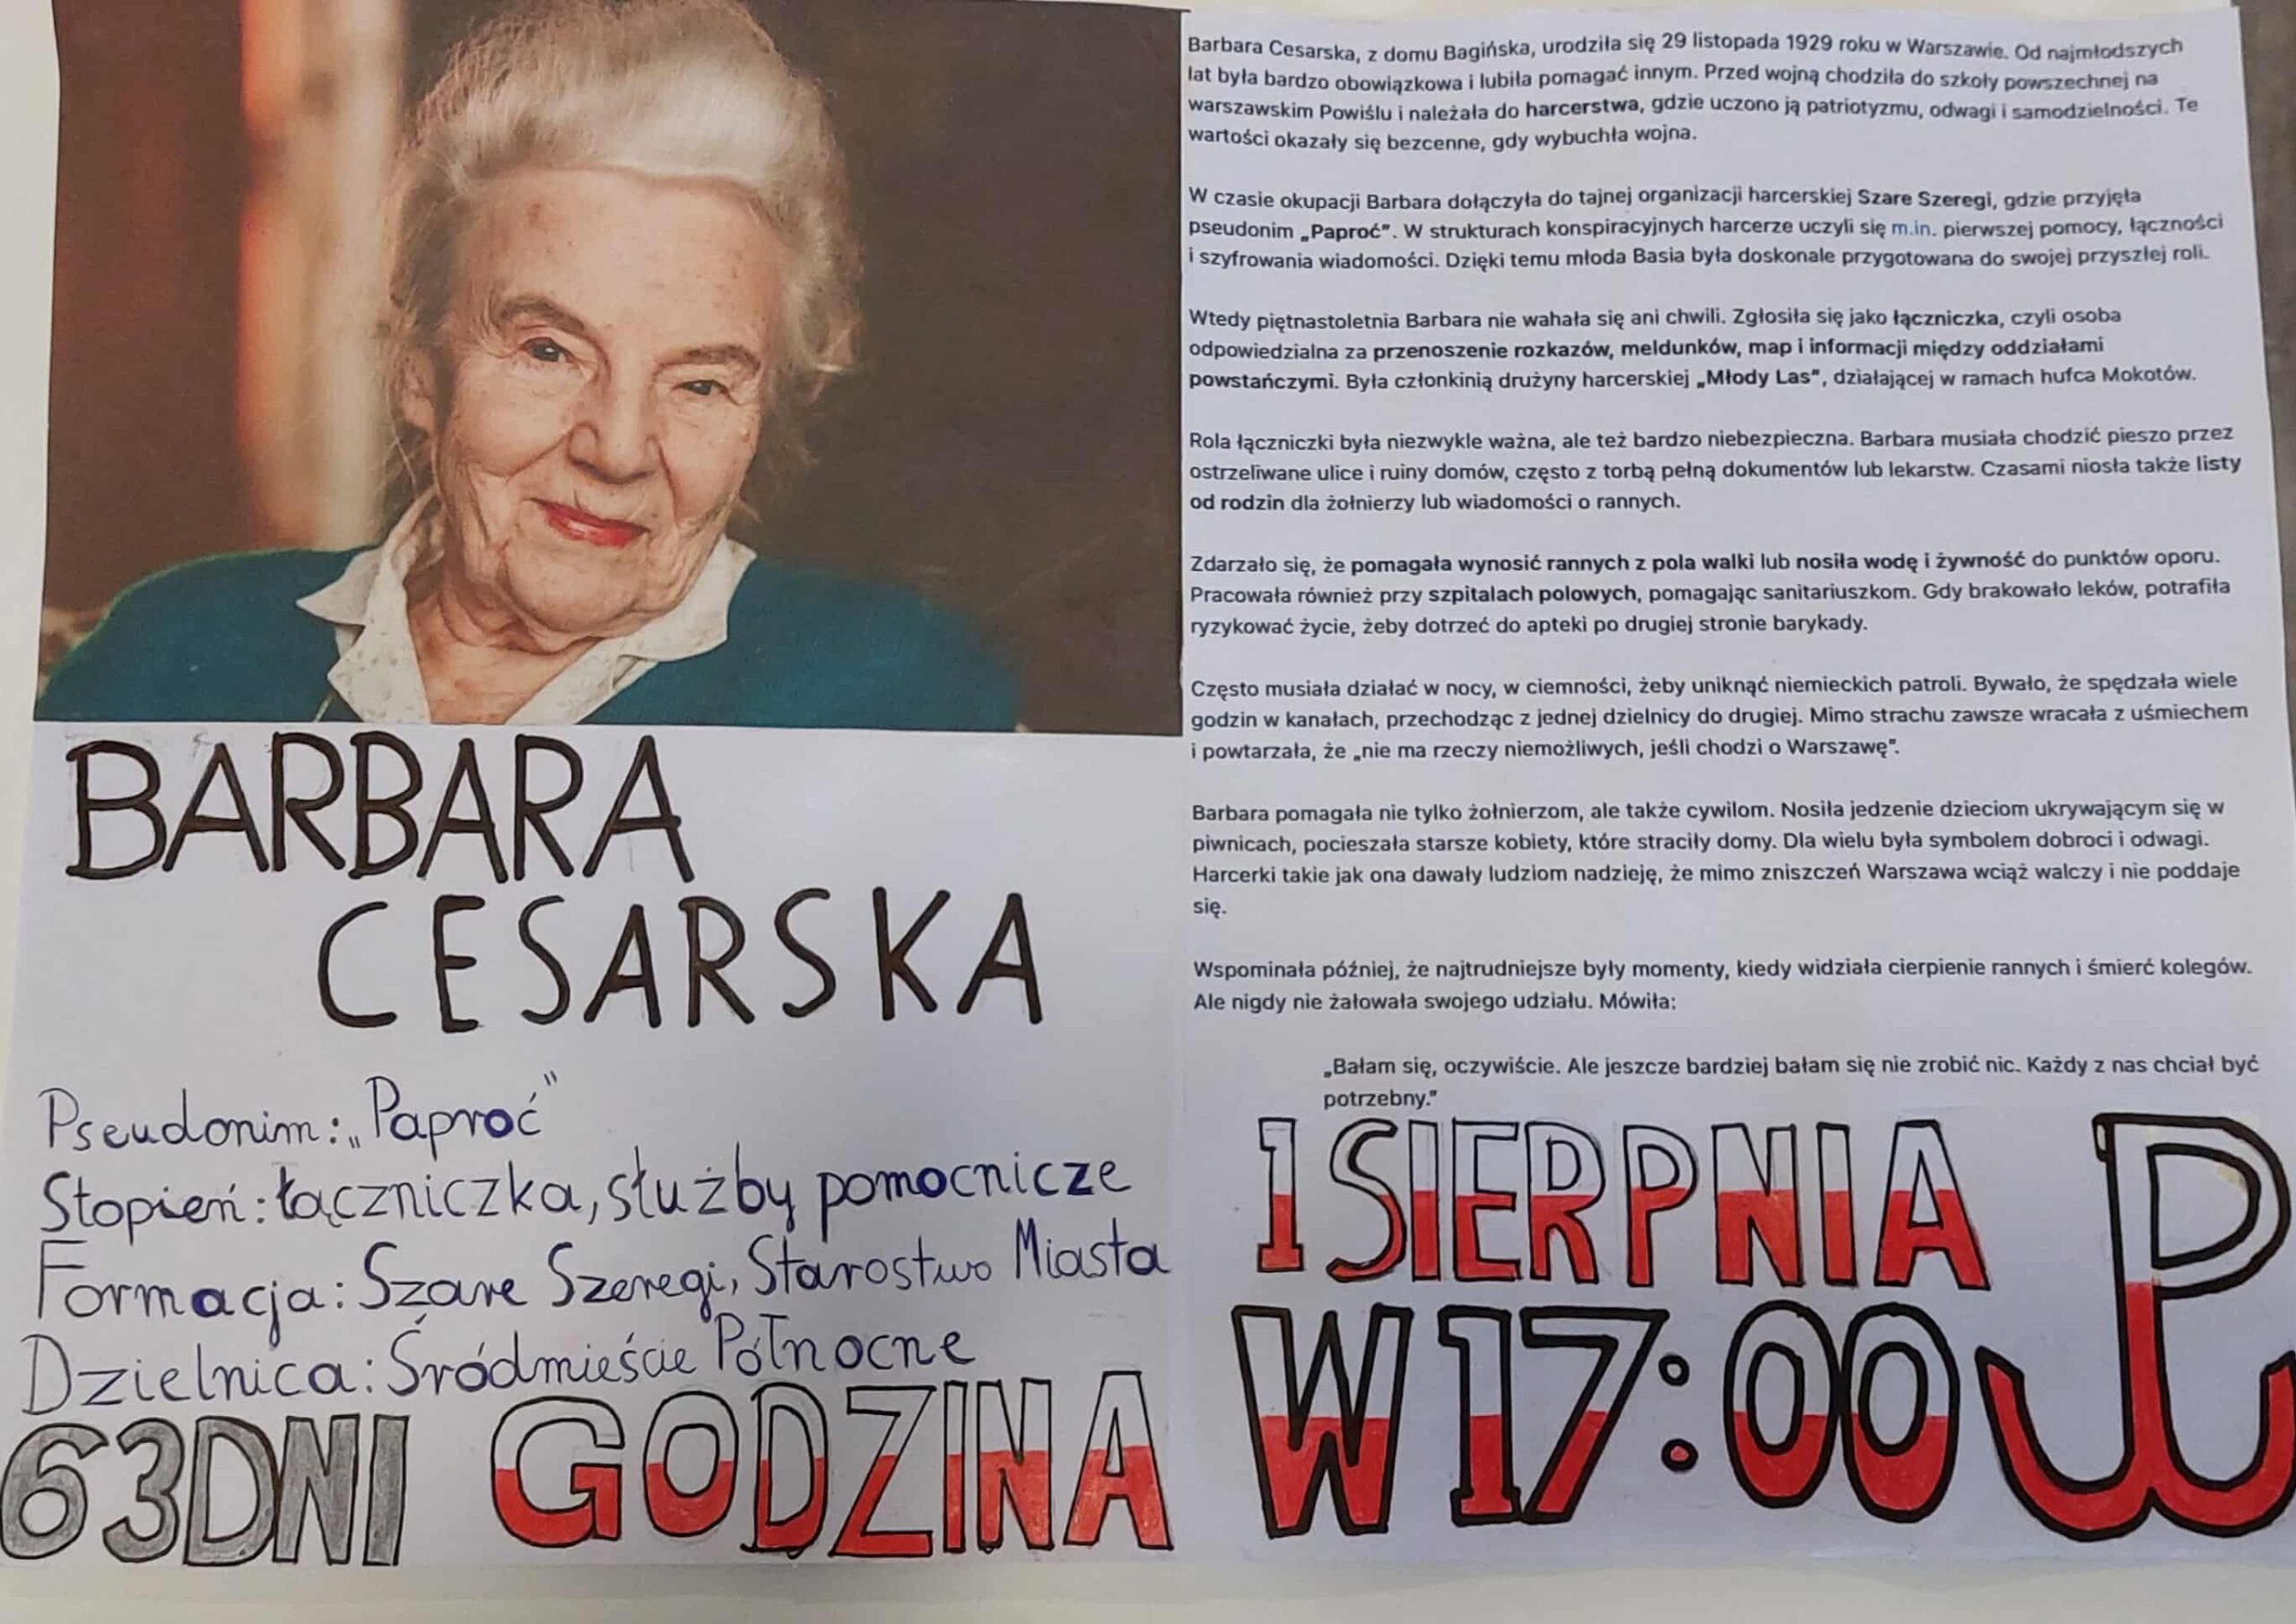 Barbara Cesarska, z domu Bagińska, urodziła się 29 listopada 1929 roku w Warszawie. Od najmłodszych
lat była bardzo obowiązkowa i lubiła pomagać innym. Przed wojną chodziła do szkoły powszechnej na
warszawskim Powiślu i należała do harcerstwa, gdzie uczono ją patriotyzmu, odwagi i samodzielności. Te
wartości okazały się bezcenne, gdy wybuchła wojna.
W czasie okupacji Barbara dołączyła do tajnej organizacji harcerskiej Szare Szeregi, gdzie przyjęła
pseudonim „Paproć”. W strukturach konspiracyjnych harcerze uczyli się m.in. pierwszej pomocy, łączności
i szyfrowania wiadomości. Dzięki temu młoda Basia była doskonale przygotowana do swojej przyszłej roli.
Wtedy piętnastoletnia Barbara nie wahała się ani chwili. Zgłosiła się jako łączniczka, czyli osoba
odpowiedzialna za przenoszenie rozkazów, meldunków, map i informacji między oddziałami
powstańczymi. Była członkinią drużyny harcerskiej „Młody Las”, działającej w ramach hufca Mokotów.
Rola łączniczki była niezwykle ważna, ale też bardzo niebezpieczna. Barbara musiała chodzić pieszo przez
ostrzeliwane ulice i ruiny domów, często z torbą pełną dokumentów lub lekarstw. Czasami niosła także listy
od rodzin dla żołnierzy lub wiadomości o rannych.
Zdarzało się, że pomagała wynosić rannych z pola walki lub nosiła wodę i żywność do punktów oporu.
Pracowała również przy szpitalach polowych, pomagając sanitariuszkom. Gdy brakowało leków, potrafiła
ryzykować życie, żeby dotrzeć do apteki po drugiej stronie barykady.
Często musiała działać w nocy, w ciemności, żeby uniknąć niemieckich patroli. Bywało, że spędzała wiele
godzin w kanałach, przechodząc z jednej dzielnicy do drugiej. Mimo strachu zawsze wracała z uśmiechem
i powtarzała, że „nie ma rzeczy niemożliwych, jeśli chodzi o Warszawę”.
Barbara pomagała nie tylko żołnierzom, ale także cywilom. Nosiła jedzenie dzieciom ukrywającym się w
piwnicach, pocieszała starsze kobiety, które straciły domy. Dla wielu była symbolem dobroci i odwagi.
Harcerki takie jak ona dawały ludziom nadzieję, że mimo zniszczeń Warszawa wciąż walczy i nie poddaje
się.
Wspominała później, że najtrudniejsze były momenty, kiedy widziała cierpienie rannych i śmierć kolegów.
Ale nigdy nie żałowała swojego udziału. Mówiła:
„Bałam się, oczywiście. Ale jeszcze bardziej bałam się nie zrobić nic. Każdy z nas chciał być
potrzebny.”
BARBARA
CESARSKA
Pseudonim: „Paproć”
Stopień: łączniczka, służby pomocnicze
Formacja: Szare Szeregi, Starostwo Miasta
Dzielnica: Śródmieście Północne
63 DNI GODZINA
1 SIERPNIA
W 17:00